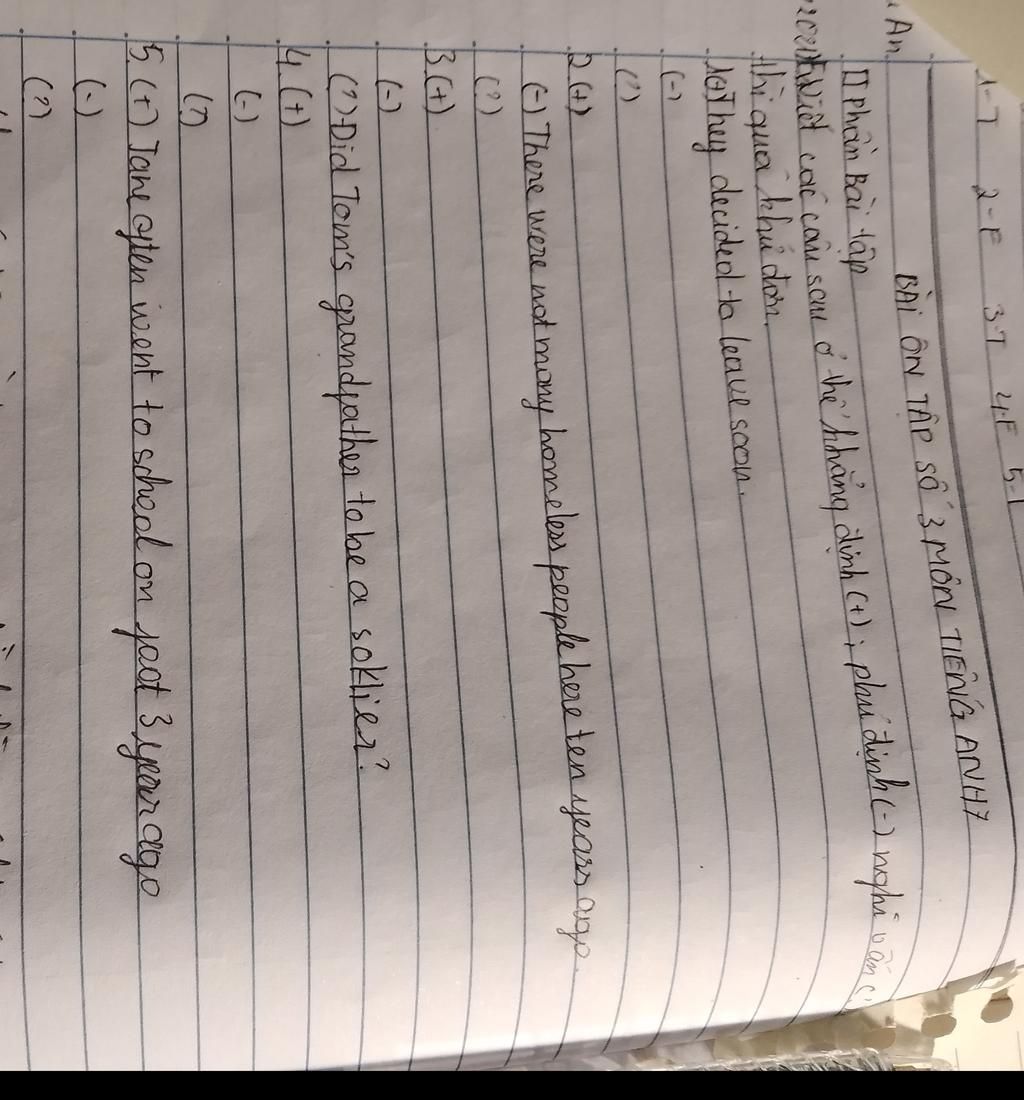 1-T 2-F 3-T 4-F 5-
An
BÀI ÔN TẬP SỐ 3 MÔN TIẾNG ANH 7
II Phần Bài tập
Viết các câu sau ở thể khẳng định (+), phủ định (-) nghi vấn
thì quá khứ đơn.
1(+) They decided to leave soon.
(-)
(?)
2 (+)
(-) There were not many homeless people here ten years ago.
(?)
3 (+)
(-)
(?) Did Tom's grandfather to be a soklier?
4 (+)
(-)
(?)
5 (+) Jane often went to school on foot 3 year ago
(-)
(?)